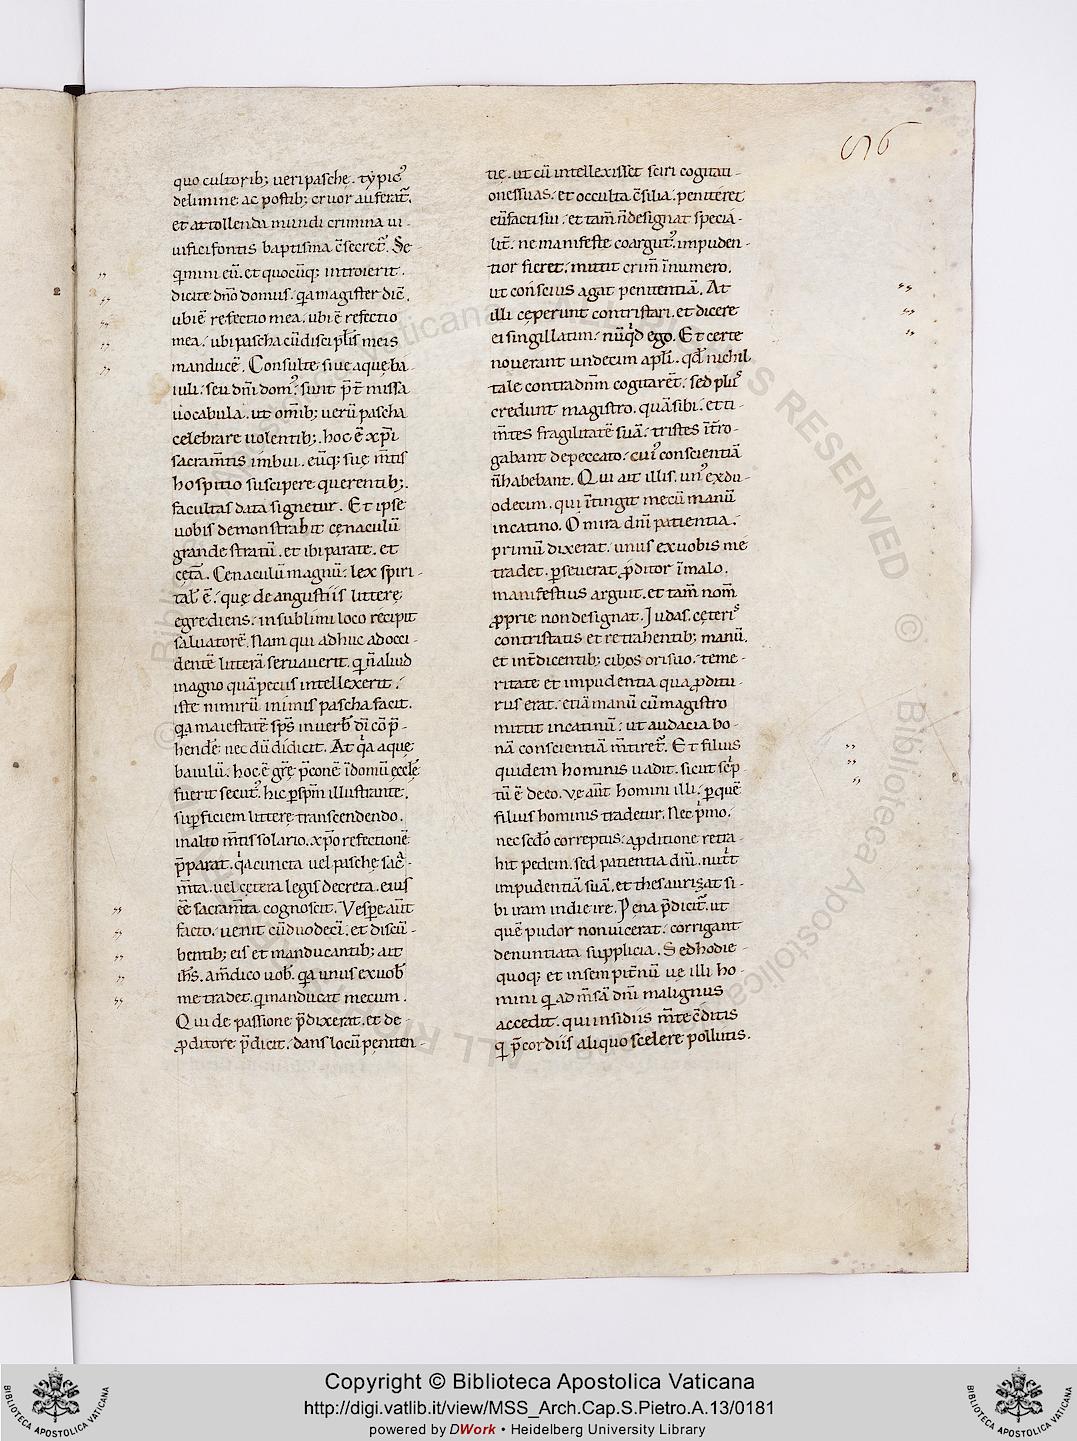 quo cultorib; ueri paschę. typic᾽
delimine ac postib; cruor auferat᷑.
et attollenda mundi crimina ui-
uifici fontis baptisma c̄secret᷑. Se-
q̄mini eū. et quocūq; introierit.
dicite dn̄o domus. q̄a magister dic̄.
ubi ē refectio mea. ubi ē refectio
mea. ubi pascha cū discipl̄is meis
manducē. Consulte siue aquę ba-
iuli. seu dn̄i dom᾽. sunt p̄t̄missa
uocabula. ut om̄ib; uerū pascha
celebrare uolentib;. hoc ē xp̄i
sacram̄tis imbui. eūq; suę m̄tis
hospitio suscipere querentib;.
facultas data signetur. Et ipse
uobis demonstrab̄it cęnaculū
grande stratū. et ibi parate. et
cęta᷑. Cenaculū magnū. lex spiri-
tal̄ ē. quę de angustiis litterę
egrediens. in sublimi loco recipit
saluatorē. Nam qui adhuc ad occi-
dentē litterā seruauerit. q̄ n̄ aliud
magno quā pecus intellexerit.
iste nimirū in imis pascha facit.
q̄a maiestatē sp̄s in uerb̄ dī cōp̄-
hendē nec dū didicit. At q̄a aquę
baiulū. hoc ē gr̄ę p̄conē ī domū ęcclę
fuerit secut᾽. hic ꝑ sp̄m illustrante.
suꝑficiem litterę transcendendo.
in alto m̄tis solario. xp̄o refectionē
p̄parat. q̄a cuncta uel paschę sac̄-
m̄ta. uel cętera legis decreta. eius
ēē sacram̄ta cognoscit. Vesꝑe aūt
facto. uenit cū duodecī. et discū-
bentib; eis et manducantib; ait
ih̄s. am̄ dico uob̄. q̄a unus ex uob̄
me tradet. q̄ manducat mecum.
Qui de passione p̄dixerat. et de
ꝓditore p̄dicit. dans locū pęniten-
tię. ut cū intellexisset sciri cogitati-
ones suas. et occulta c̄silia. peniteret
eū facti sui. et tam̄ n̄ designat specia-
lit᷑. ne manifeste coargut᾽. impuden-
tior fieret. mittit crim̄ ī numero.
ut conscius agat penitentiā. At
illi cęperunt contristari. et dicere
ei singillatim. nūq̄d ego. Et certe
nouerant undecim apl̄i. qd̄ nichil
tale contra dn̄m cogitaret᷑. sed plus᾽
credunt magistro. quā sibi. et ti-
m̄tes fragilitatē suā. tristes īt᷑ro-
gabant de peccato. cui᾽ conscientiā
n̄ habebant. Qui ait illis. un᾽ ex du-
odecim. qui ītingit mecū manū
in catino. O mira dn̄i patientia.
primū dixerat. unus ex uobis me
tradet. ꝑseuerat ꝓditor ī malo.
manifestius arguit. et tam̄ nom̄
ꝓprie non designat. Judas. cęteris᾽
contristatis et retrahentib; manū.
et int᷑dicentib; cibos ori suo. teme-
ritate et impudentia qua ꝓditu-
rus erat. etiā manū cū magistro
mittit in catinū. ut audacia bo-
nā conscientiā m̄tiret᷑. Et filius
quidem hominis uadit. sicut sc̄p-
tū ē de eo. vę aūt homini illi. ꝑ quē
filius hominis tradetur. Nec p̄mo.
nec sedo correptus. a ꝓditione retra-
hit pedem. sed patientia dn̄i. nut̄t
impudentiā suā. et thesaurizat si-
bi iram in die irę. Pęna p̄dicit᷑. ut
quē pudor non uicerat. corrigant
denuntiata supplicia. Sed hodie-
quoq; et in sempit᷑nū ue illi ho-
mini q̄ ad m̄sā dn̄i malignus
accedit. qui insidiis m̄te c̄ditis
q̄ p̄cordiis aliquo scelere pollutis.
Copyright © Biblioteca Apostolica Vaticana
http://digi.vatlib.it/view/MSS_Arch.Cap.S.Pietro.A.13/0181
powered by DWork • Heidelberg University Library
BIBLIOTECA APOSTOLICA VATICANA
BIBLIOTECA APOSTOLICA VATICANA